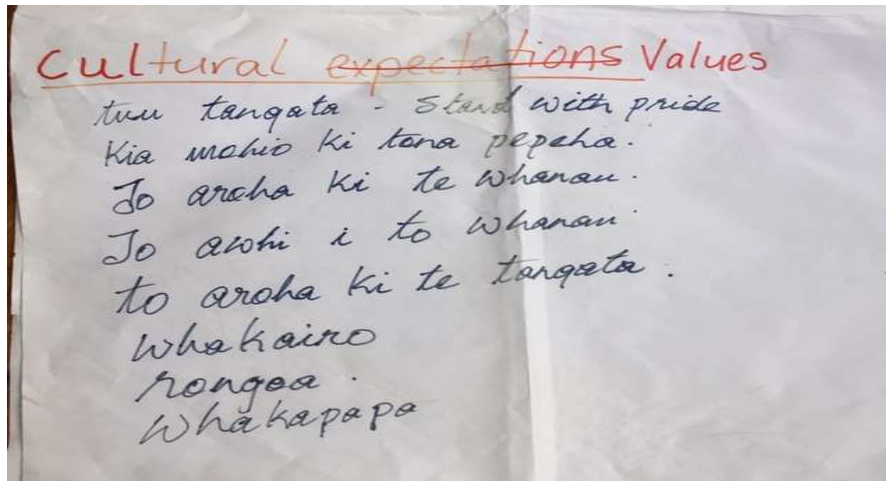 Cultural expectations Values
tuu tangata - Stand with pride
Kia mohio ki tona pepeha.
To aroha ki te whanau.
To awhi i to whanau.
to aroha ki te tangata.
whakairo
rongoa.
whakapapa